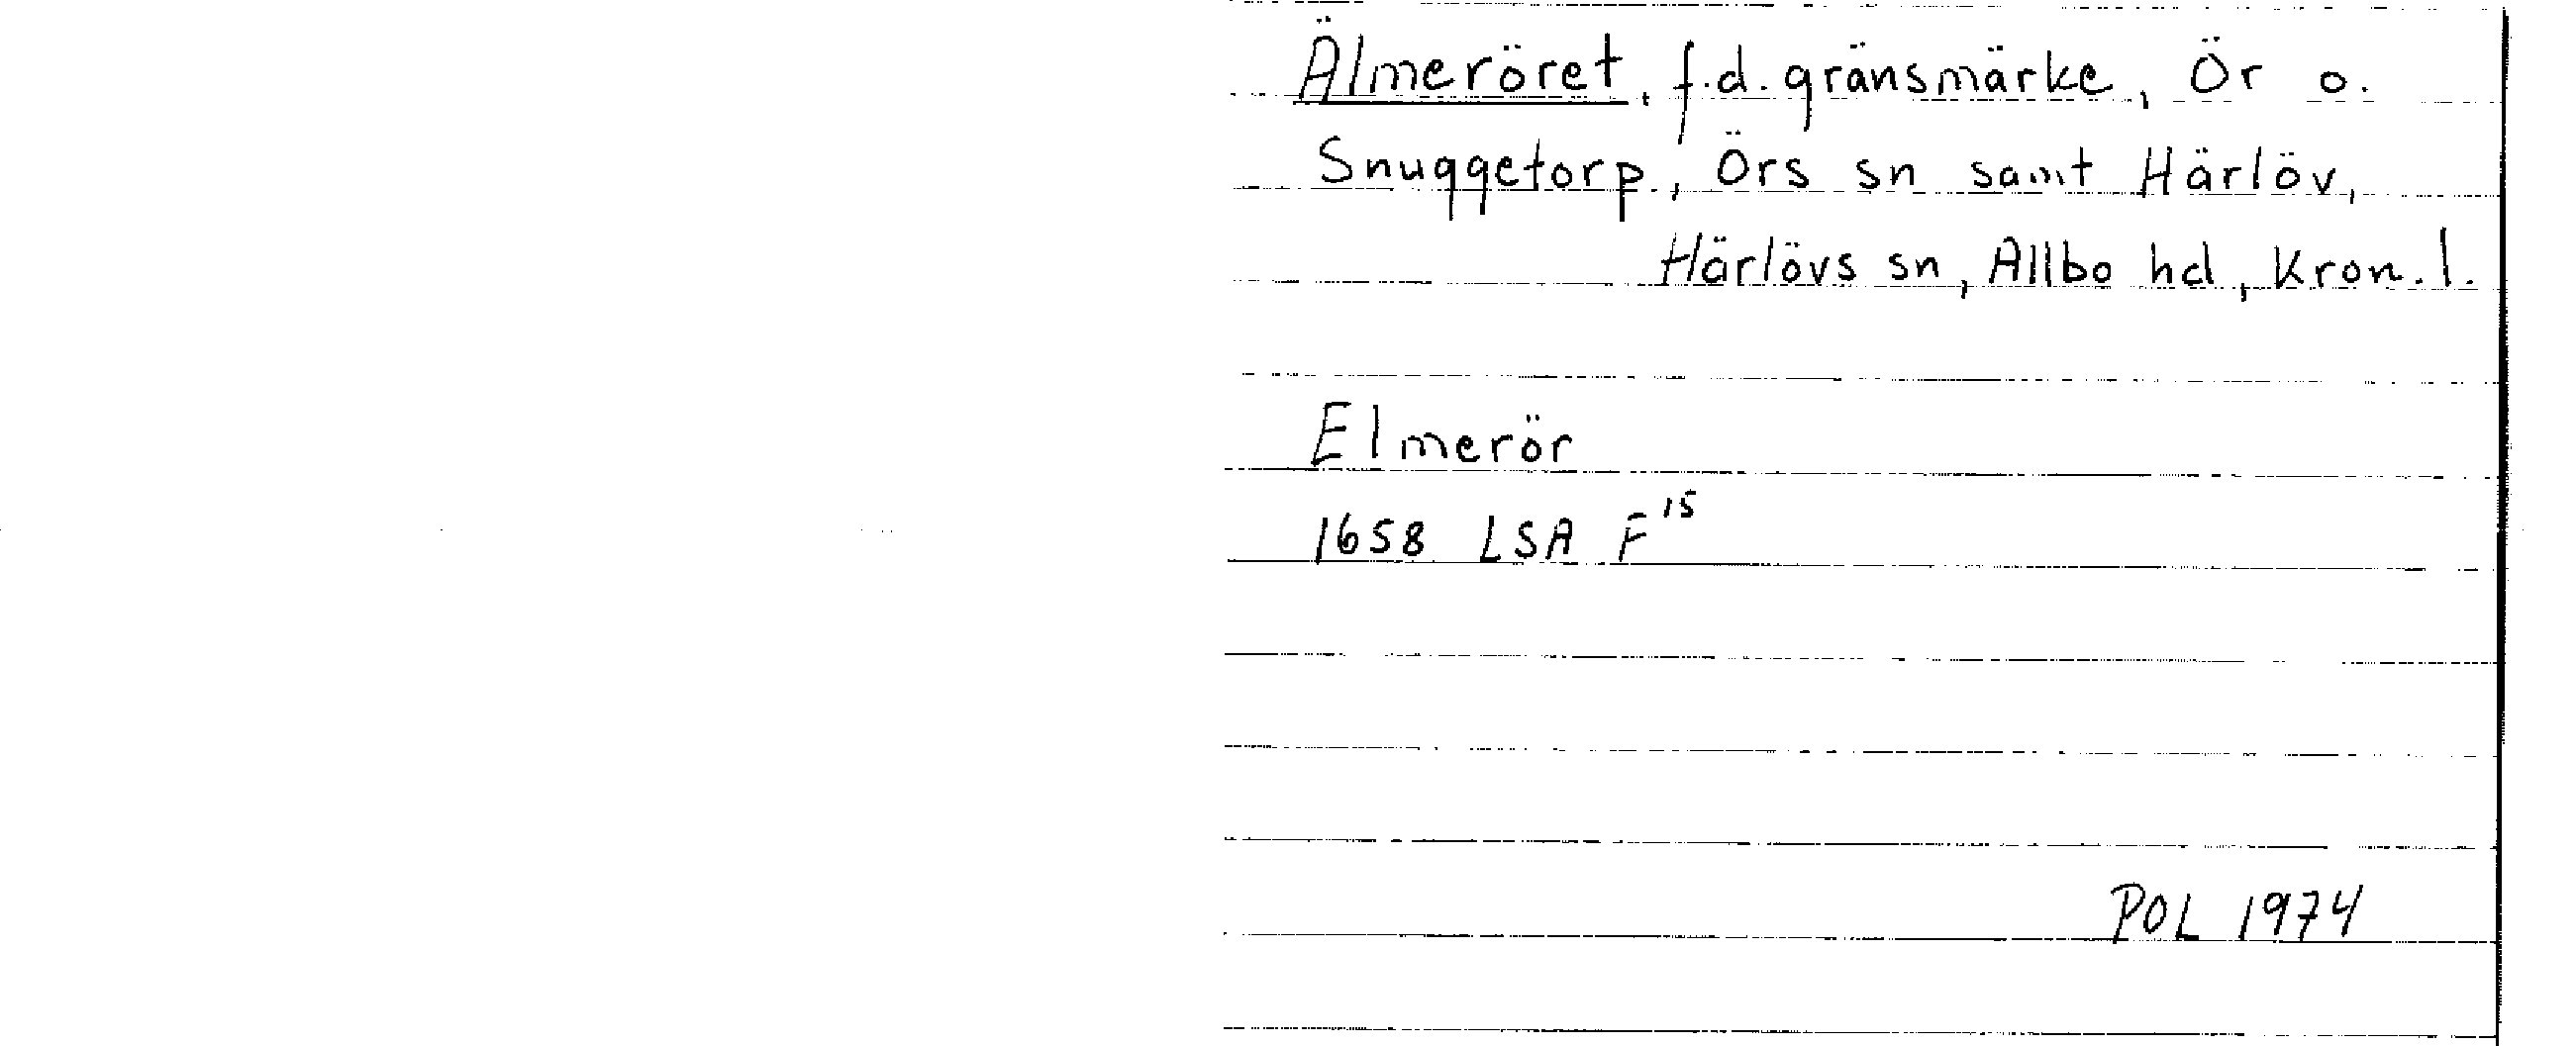 Älmeröret, f.d. gränsmärke, Ör o.
Snuggetorp, Örs sn samt Härlöv,
Härlövs sn, Allbo hd, Kron. l.
Elmerör
1658 LSA F¹⁵
POL 1974